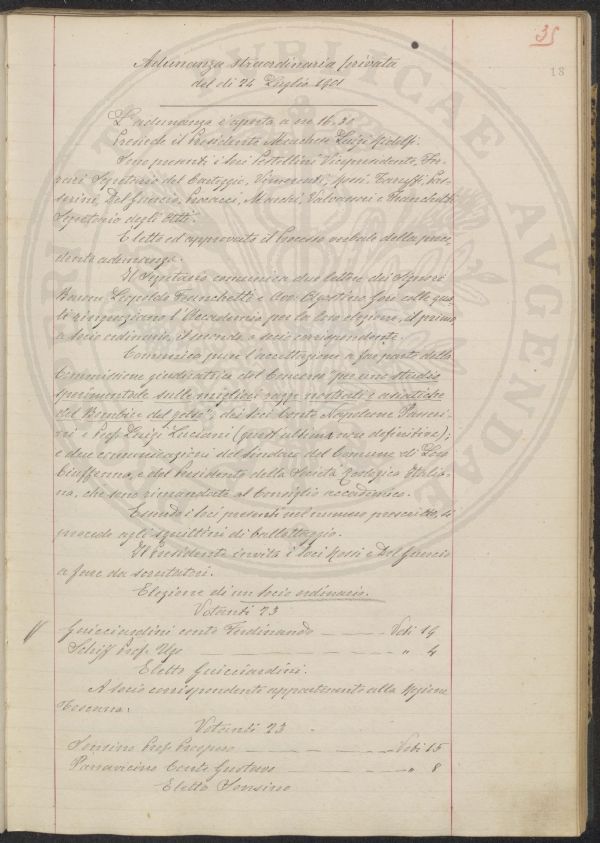 35
13
Adunanza straordinaria privata
del dì 24 Luglio 1901
L'adunanza è aperta a ore 16.30
Presiede il Presidente Marchese Luigi Ridolfi.
Sono presenti i Soci Pestellini Vicepresidente, 
Segretario del Carteggio, Vimercati, Rossi, 
Del Guercio, Marchi, e Franchetti
Segretario degli Atti.
È letto ed approvato il Processo verbale della prece
dente adunanza.
Il Segretario comunica due lettere dei Signori
Baron Leopoldo Franchetti e Avv. Agostino colle qua
li ringraziano l'Accademia per la loro elezione, il primo
a socio ordinario, il secondo a socio corrispondente.
Comunica pure l'accettazione a far parte della
Commissione giudicatrice del Concorso "per uno studio
sperimentale sulle migliori razze nostrali e asiatiche
del Bombice del gelso", dei Soci Conte Napoleone Passeri
ni e Prof. Luigi Luciani (quest'ultima non definitiva);
e due comunicazioni del Sindaco del Comune di Loro
Ciuffenna, e del Presidente della Società Zoologica Italia
na, che sono rimandate al Consiglio accademico.
Essendo i Soci presenti nel numero prescritto, si
procede agli squittini di ballottaggio.
Il Presidente invita i Soci Rossi e Del Guercio
a fare da scrutatori.
Elezione di un socio ordinario.
Votanti 23
Guicciardini conte Ferdinando — Voti 19
Schiff Prof. Ugo — " 4
Eletto Guicciardini.
A socio corrispondente appartenente alla Regione
Toscana:
Votanti 23
Sonsino Prof. Prospero — Voti 15
Parravicino Conte Gustavo — " 8
Eletto Sonsino
PUBLICAE
AVGENDAE